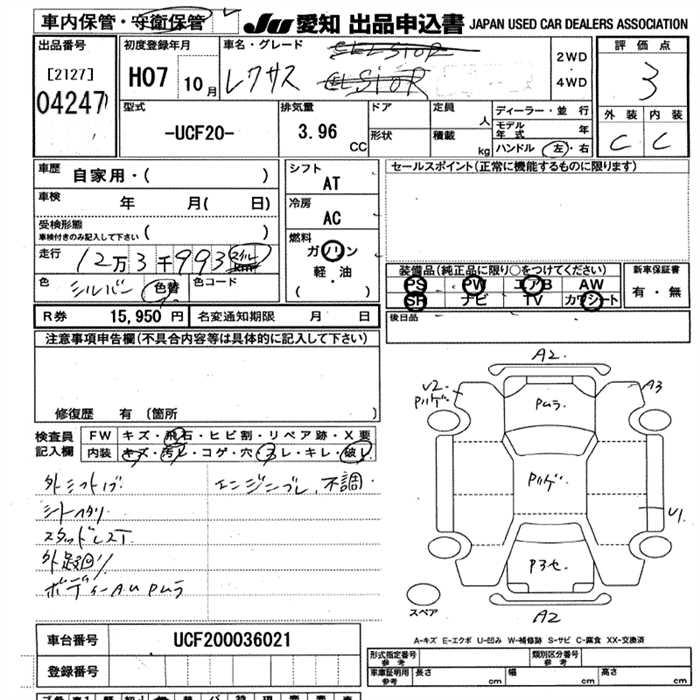 車内保管・守衛保管 JU 愛知 出品申込書 JAPAN USED CAR DEALERS ASSOCIATION
出品番号 初度登録年月 車名・グレード 2WD・4WD 評価点
[2127] 04247 H07 10月 レクサス CELSIOR 3
型式 排気量 ドア 定員 人 ディーラー・並行 外装 内装
-UCF20- 3.96 CC 形状 積載 kg モデル年式 年 C C
ハンドル 左・右
車歴 自家用・( ) シフト AT セールスポイント(正常に機能するものに限ります)
車検 年 月( 日) 冷房 AC
受検形態 車検付きのみ記入して下さい ( ) 燃料 ガソリン
走行 12万3千993 軽・油 装備品(純正品に限り○をつけてください) 新車保証書
色 シルバー 色替 色コード ( ) PS PW エアB AW 有・無
SR ナビ TV カワシート
R券 15,950円 名変通知期限 月 日 後日品
注意事項申告欄(不具合内容等は具体的に記入して下さい)
修復歴 有 (箇所
検査員記入欄 FW キズ・飛石・ヒビ割・リペア跡・X要
内装 キズ・汚レ・コゲ・穴・スレ・キレ・破レ
エンジンブレ、不調
スタッドレス
A2
A3
U2
Pムラ
Pハゲ
U1
A2
スペア
A-キズ E-エクボ U-凹み W-補修跡 S-サビ C-腐食 XX-交換済
車台番号 UCF200036021 形式指定番号 参考 類別区分番号 参考
登録番号 車庫証明用 参考 長さ cm 幅 cm 高さ cm